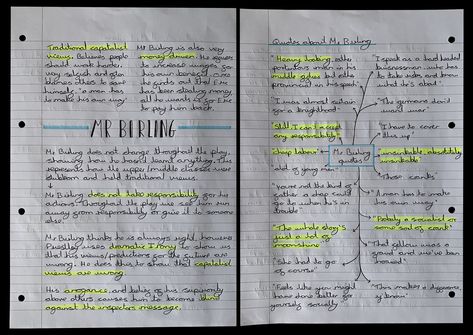 Traditional capitalist
views. Believes people
should work harder,
very selfish and often
blames others to save
himself. "a man has
to make his own way"
Mr Birling is also very
money driven. He refuses
to increase wages for
his own benefit. Once
he finds out that Eric
has been stealing money
all he wants is for Eric
to pay him back.
MR BIRLING
Mr Birling does not change throughout the play,
showing how he hasn't learnt anything. This
represents how the upper middle classes were
stubborn and held traditional views.
Mr Birling does not take responsibility for his
actions throughout the play we see him run
away from responsibility or give it to someone
else.
Mr Birling thinks he is always right, however
Priestley uses dramatic irony to show us
that his views/predictions for the future are
wrong. He does this to show that capitalist
views are wrong.
His arrogance, and belief of his superiority
above others causes him to become blind
against the inspectors message.
Quotes about Mr Birling
"Heavy looking, rather
portentous man in his
middle fifties but rather
provincial in his speech"
"I was almost certain
for a knighthood"
"Still I can't accept
any responsibility"
"cheap labour"
"old of young men"
"You're not the kind of
father a chap could
go to when he's in
trouble"
"The whole story's
just a lot of
moonshine"
"She had to go
of course"
"Feels like you might
have done better for
yourself socially"
Mr Birling
quotes
"I speak as a hard headed
businessman, who has
to take risks and know
what he's about"
"The germans don't
want war"
"I have to cover
this up"
"unsinkable, absolutely
unsinkable"
"These cranks"
"A man has to make his
own way"
"Probably a socialist or
some sort of crank"
"That fellow was a
fraud and we've been
hoaxed"
"This makes a difference,
y'know"